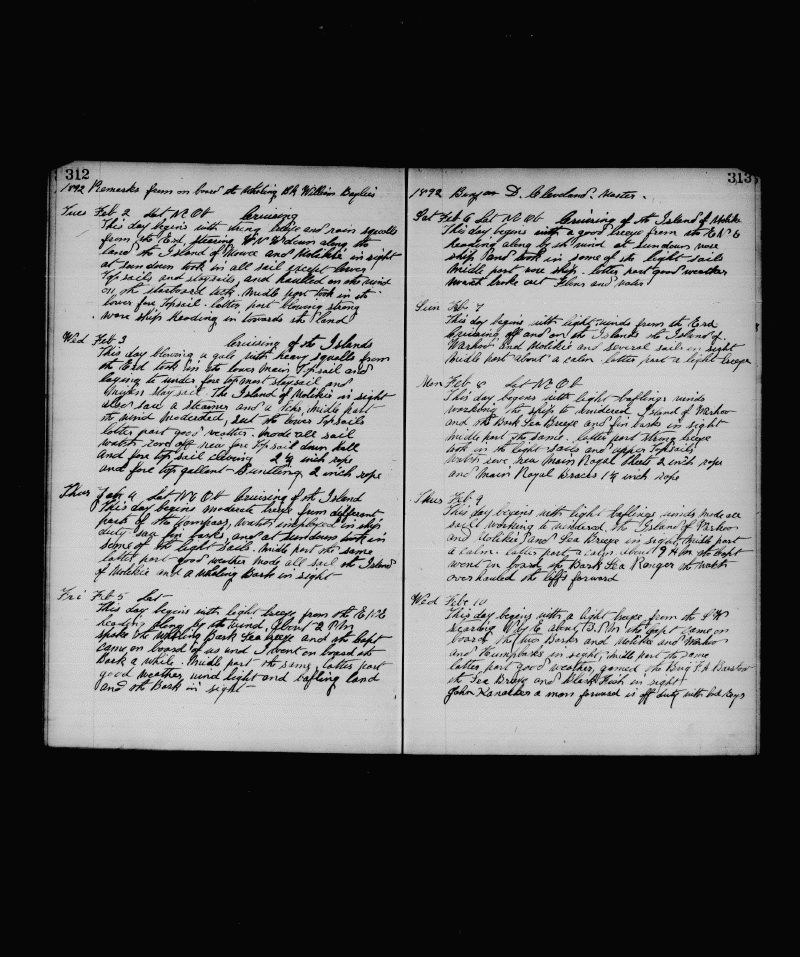 312
1892 Remarks from on board the Whaling Bk William Baylies
Tues Feb 2 Lat N Cruising
This day begins with strong breeze and rain squalls
from the End, steering W N W down along the
land the Island of Mowe and Molikie in sight
at sundown took in all sail except lower
Topsails and staysails, and hauled on the wind
on the starboard tack. Middle part took in the
lower fore Topsail. latter part blowing strong
wore ships heading in towards the land
Wed Feb 3 Cruising of the Islands
This day blowing a gale with heavy squalls from
the End took in the lower main Topsail and
laying to under fore topmast staysail and
staysail. The Island of Molikie in sight
also saw a steamer and a Middle part
the wind moderated, set the lower Topsails
latter part good weather. made all sail
watch off new fore Topsail down hall
and fore top sail clewing 2 1/4 inch rope
and fore top gallant Buntling 2 inch rope
Thurs 4 Lat N Cruising of the Island
This day begins moderate breeze from different
parts of the compass, watch imployed in ships
duty saw fin backs, and at sundown took in
some of the light sails. Middle part the same
latter part good weather made all sail the Island
of Molikie and a whaling Bark in sight
Fri Feb 5 Lat
This day begins with light breeze from the E N E
heading along by the wind, about 2 P.M.
spoke the whaling Bark Sea breeze and the Capt
came on board of us and I went on board the
Bark a while. Middle part the same, latter part
good weather, wind light and bafling land
and the Bark in sight
313
1892 D. Cleveland. Master.
Sat Feb 6 Lat N Cruising of the Island of Molikie
This day begins with a good breeze from the E N E
heading along by the wind at sundown wore
ship and took in some of the light sails
Middle part wore ship. latter part good weather
watch broke out flour and
Sun Feb 7
This day begins with light winds from the End
Cruising off and on the Islands the Island of
and Molikie and several sails in sight
Middle part about a calm latter part a light breeze
Mon Feb 8 Lat N
This day begins with light baflings winds
working the ship to windered. Island of
and the Bark Sea Breeze and fin backs in sight
Middle part the same. latter part strong breeze
took in the light sails and upper Topsails
watch new Main Royal sheets 2 inch rope
and Main Royal braces 1 1/2 inch rope
Thurs Feb 9
This day begins with light baflings winds made all
sail working to windered, the Island of
and Molikie and Sea Breeze in sight, Middle part
a calm. latter part a calm about 9 A.M. the Capt
went on board the Bark Sea Ranger the watch
overhauled the lifts forward
Wed Feb 10
This day begins with a light breeze from the S W
steering by E about 3. P.M. the Capt came on
board the two Barks and Molikie and
and Humpbacks in sight, Middle part the same
latter part good weather, gamed the Brig F A Barstow
the Sea Breeze and Black Fish in sight
John Kanackes a man forward is off duty with